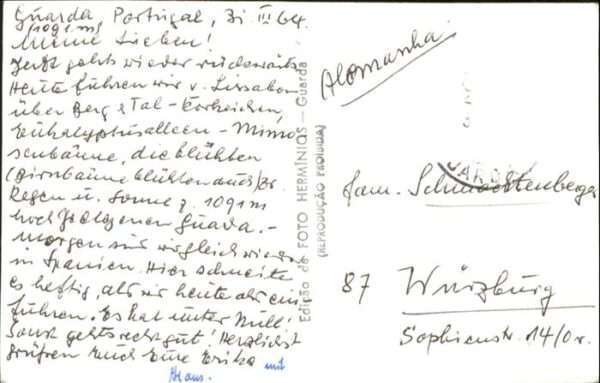 Guarda, Portugal, 31 III 64.
(1091 m)
Meine Lieben!
Jetzt gehts wieder rückwärts
Heute führen wir v. Lissabon
über Berg & Tal - Korkeichen,
Eukalyptusalleen - Mimo
senbäume, die blühten
(Birnbäume blühten auch) Bei
Regen u. Sonne z. 1091 m
hoch gelegenen Guada. -
Morgen sind wir gleich wieder
in Spanien. Hier schneite
es heftig, als wir heute abd ein
führen. Es hat unter Null!
Sonst gehts recht gut! Herzlichst
grüßen Euch Eure Erika mit
Klaus.
Edição de FOTO HERMÍNIOS - Guarda
(REPRODUÇÃO PROIBIDA)
Alemanha
GUARDA
Fam.
87 Würzburg
Sophienstr. 14/0r.